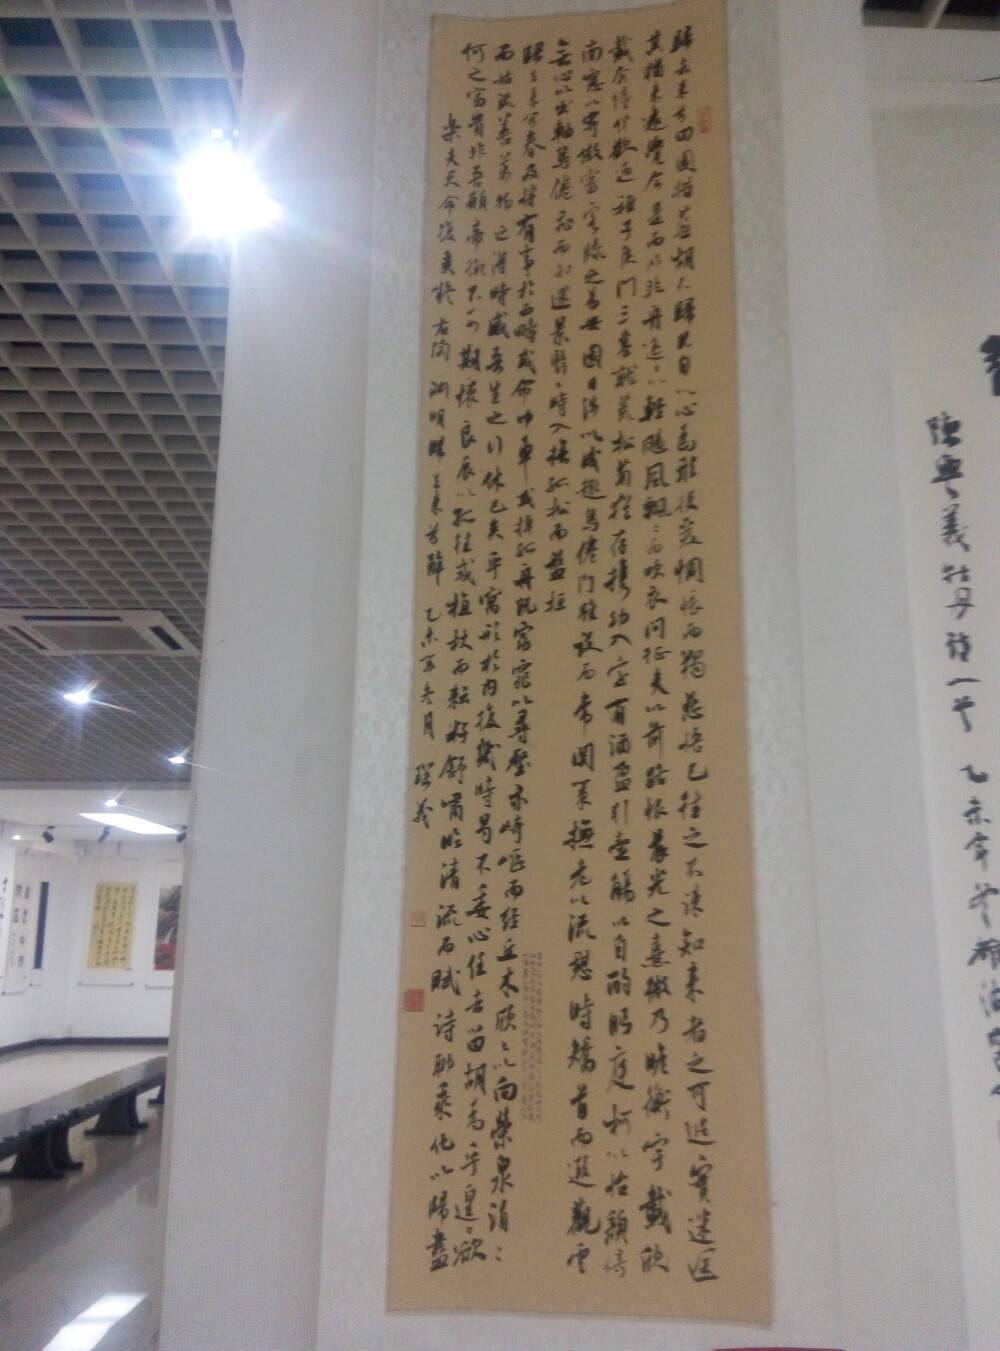 陳與義牡丹詩一首 乙未年
歸去來兮田園將蕪胡不歸既自以心爲形役奚惆悵而獨悲悟已往之不諫知來者之可追實迷途
其猶未遠覺今是而昨非舟遙〻以輕颺風飄〻而吹衣問征夫以前路恨晨光之熹微乃瞻衡宇載欣
載奔僮仆歡迎稚子候門三徑就荒松菊猶存攜幼入室有酒盈引壺觴以自酌眄庭柯以怡顏倚
南窗以寄傲審容膝之易安園日涉以成趣鳥倦門雖設而常關策撫老以流憩時矯首而遐觀雲
無心以出岫鳥倦飛而知還景翳〻時入撫孤松而盤桓
歸去來兮春及將有事於西疇或命巾車或棹孤舟既窈窕以尋壑亦崎嶇而經丘木欣〻以向榮泉涓〻
而始流善萬物之得時感吾生之行休已矣乎寓形於內復幾時曷不委心任去留胡爲乎遑〻欲
何之富貴非吾願帝鄉不可期懷良辰以孤往或植杖而耘耔舒嘯臨清流而賦詩聊乘化以歸盡
樂夫天命復奚於 右陶淵明歸去來兮辭 乙未年冬月